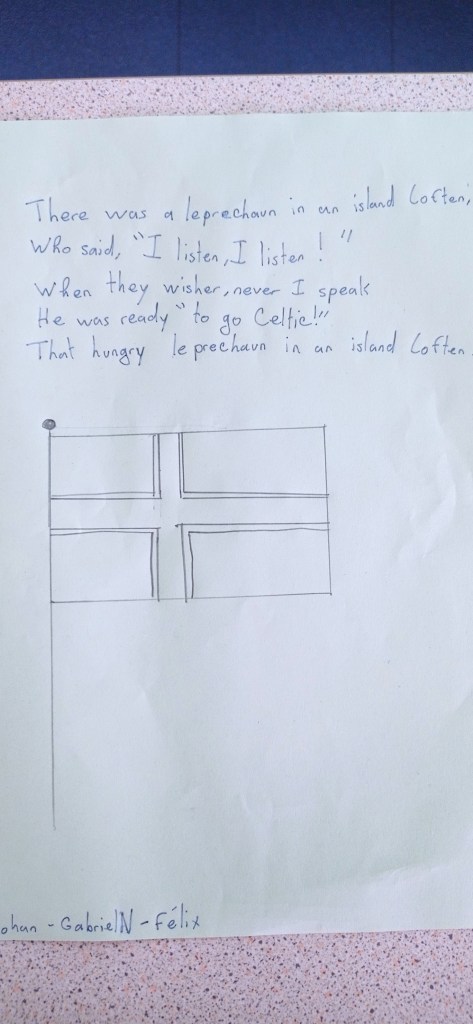 There was a leprechaun in an island Loften,
Who said, "I listen, I listen ! "
When they wisher, never I speak
He was ready "to go Celtic!"
That hungry leprechaun in an island Loften
ohan - GabrielN - Félix